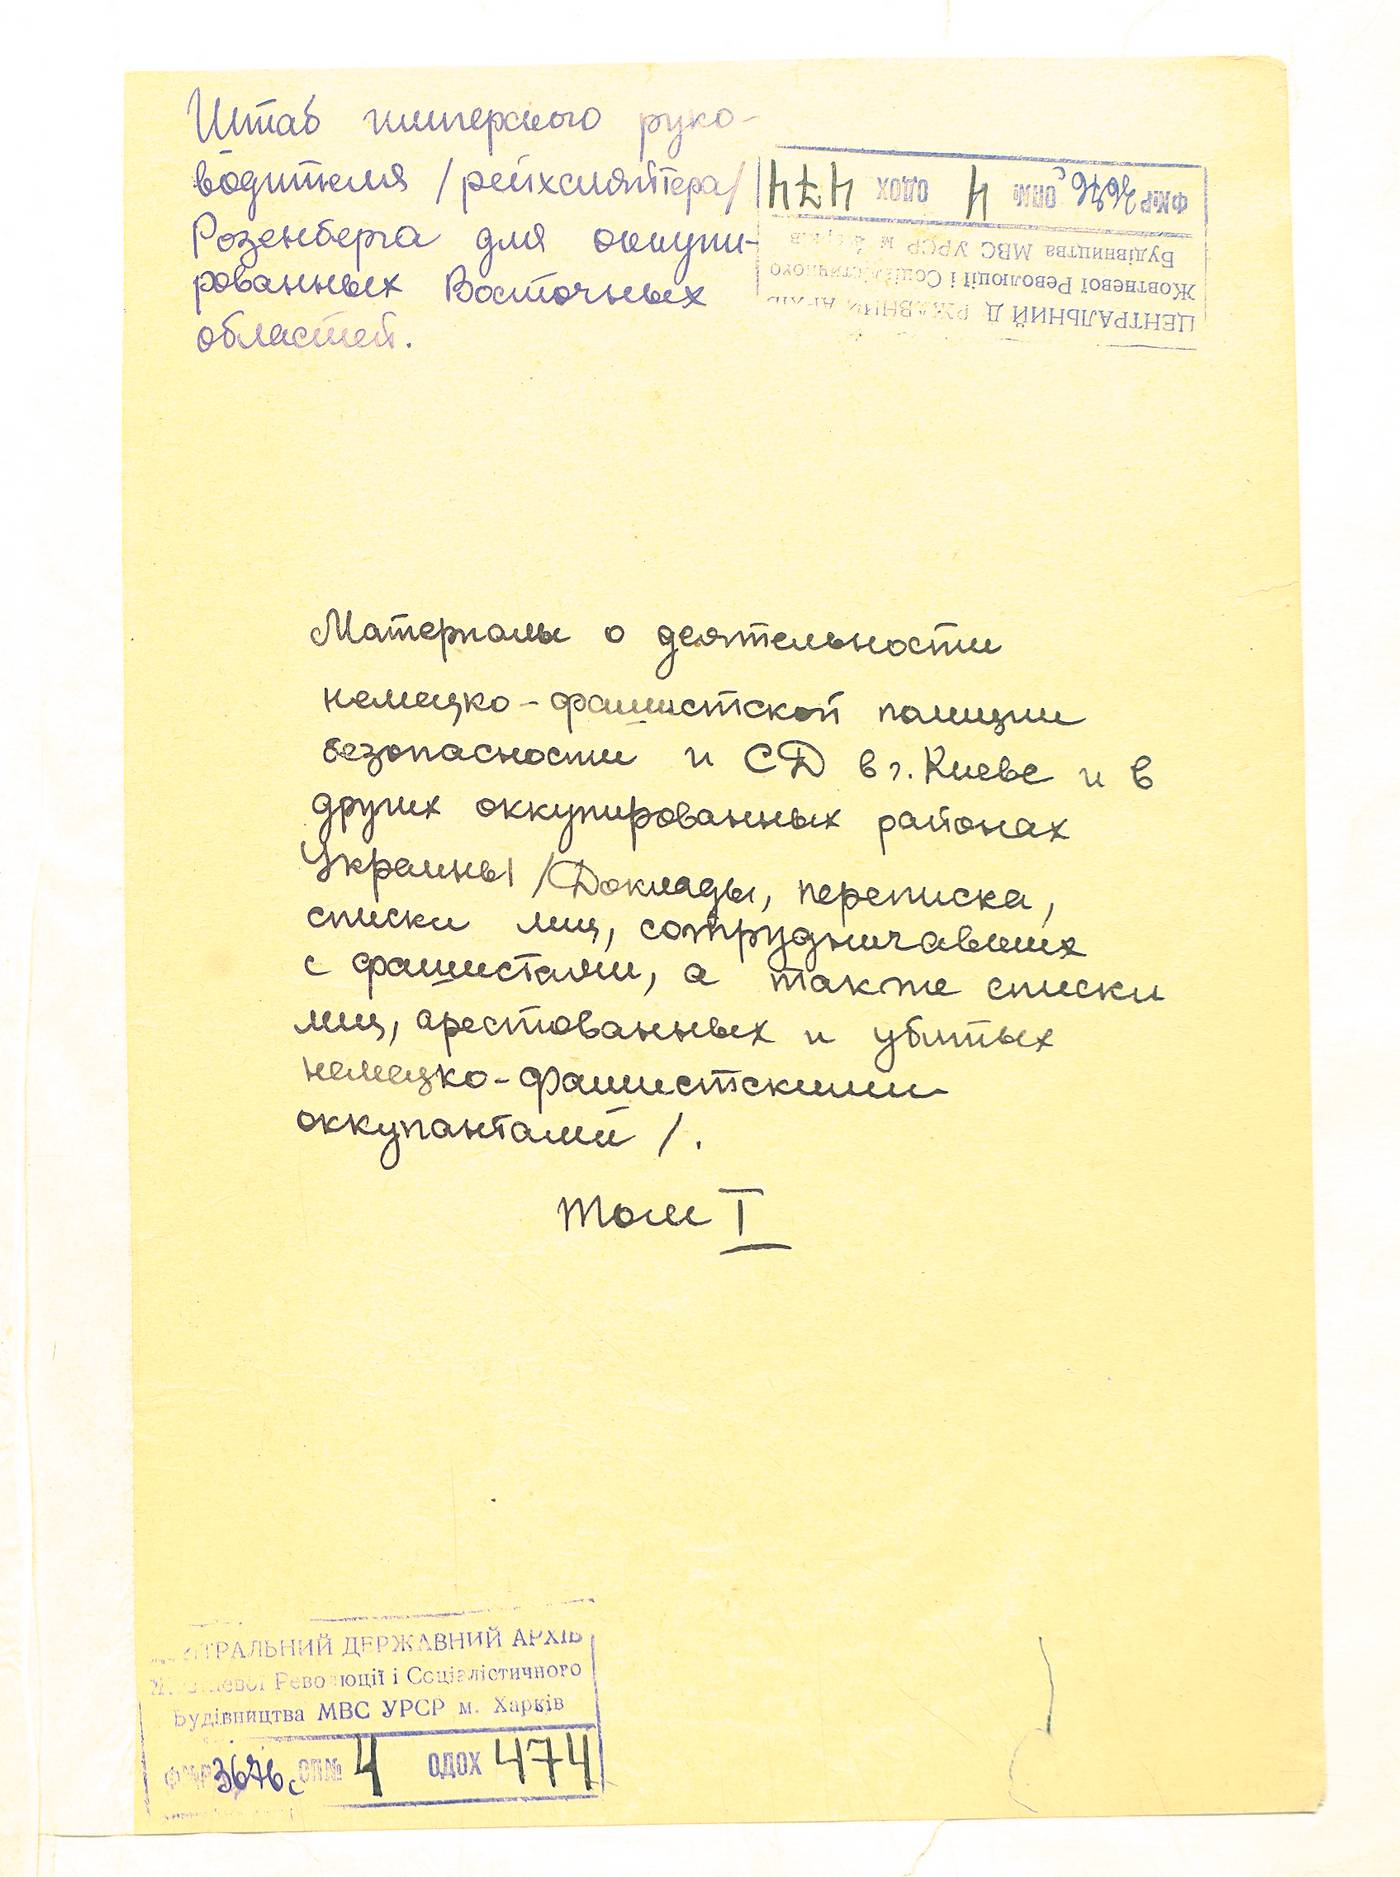 Штаб имперского руко-
водителя /рейхсляйтера/
Розенберга для оккупи-
рованных Восточных
областей.
ФМ№Р 3676с ОП№ 4 ОДОХ 474
Будівництва МВС УРСР м. Харків
Жовтневої Революції і Соціалістичного
ЦЕНТРАЛЬНИЙ ДЕРЖАВНИЙ АРХІВ
Материалы о деятельности
немецко-фашистской полиции
безопасности и СД в г. Киеве и в
других оккупированных районах
Украины /Доклады, переписка,
списки лиц, сотрудничавших
с фашистами, а также списки
лиц, арестованных и убитых
немецко-фашистскими
оккупантами/.
Том I
ЦЕНТРАЛЬНИЙ ДЕРЖАВНИЙ АРХІВ
Жовтневої Революції і Соціалістичного
Будівництва МВС УРСР м. Харків
Ф№Р 3676с ОП№ 4 ОДОХ 474